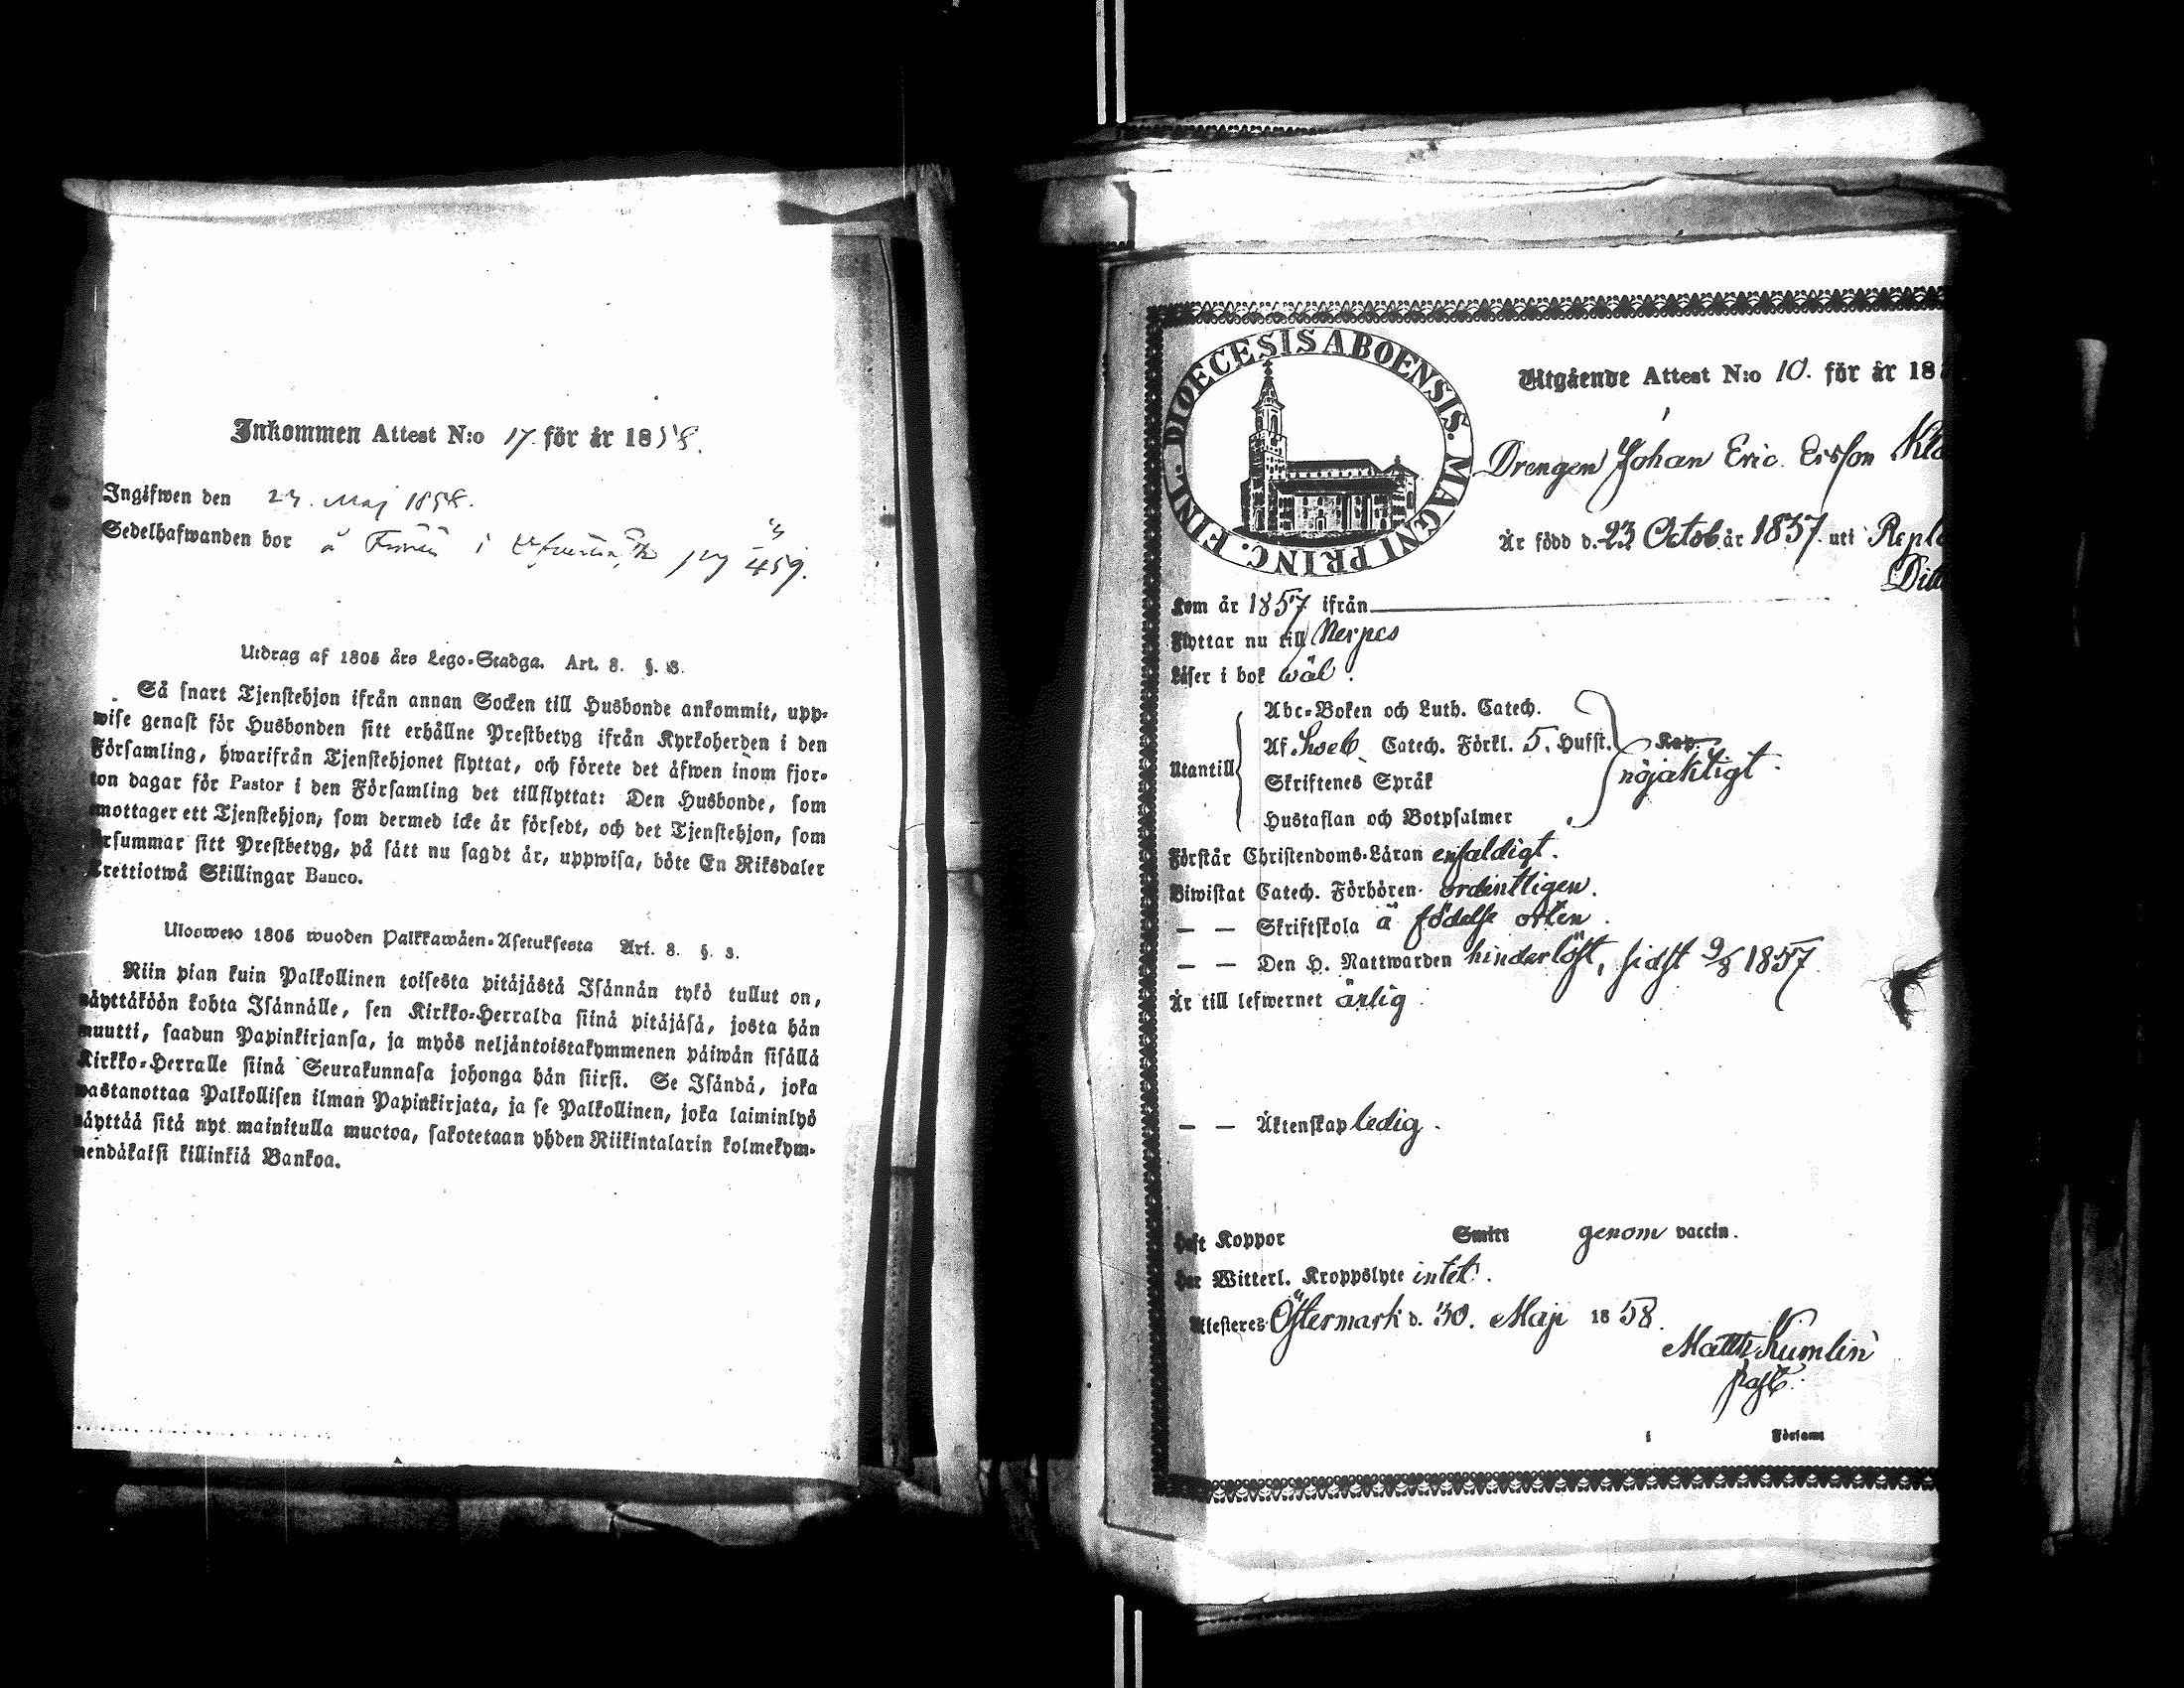 Inkommen Attest N:o 17. för år 1858.
Ingifwen den 23. Maj 1858.
Sedelhafwanden bor å i pag 459.
Utdrag af 1805 års Lego-Stadga. Art. 8. §. 3.
Så snart Tjenstehjon ifrån annan Socken till Husbonde ankommit, upp-
wise genast för Husbonden sitt erhållne Prestbetyg ifrån Kyrkoherden i den
Församling, hwarifrån Tjenstehjonet flyttat, och förete det äfwen inom fjor-
ton dagar för Pastor i den Församling det tillflyttat: Den Husbonde, som
emottager ett Tjenstehjon, som dermed icke är försedt, och det Tjenstehjon, som
försummar sitt Prestbetyg, på sätt nu sagdt är, uppwisa, böte En Riksdaler
Trettiotwå Skillingar Banco.
Ulosweto 1805 wuoden Palkkawäen-Asetuksesta Art. 8. §. 3.
Niin pian kuin Palkollinen toisesta pitäjästä Isännän tykö tullut on,
näyttäköön kohta Isännälle, sen Kirkko-Herralda siinä pitäjäsä, josta hän
muutti, saadun Papinkirjansa, ja myös neljäntoistakymmenen päiwän sisällä
Kirkko-Herralle siinä Seurakunnasa johonga hän siirsi. Se Isändä, joka
wastanottaa Palkollisen ilman Papinkirjata, ja se Palkollinen, joka laiminlyö
näyttää sitä nyt mainitulla muotoa, sakotetaan yhden Riikintalarin kolmekym-
mendäkaksi killinkiä Bankoa.
FINL. DIOECESIS ABOENSIS. MAGNI PRINC.
Utgående Attest N:o 10. för år 18
Drengen Johan Eric Ersson
Är född d. 23 Octob. år 1837. uti
Kom år 1857 ifrån
Flyttar nu till Nerpes
Läser i bok wäl.
Abc-Boken och Luth. Catech.
Utantill Af Sweb. Catech. Förkl. 5. Hufst. Kap. nöjaktigt.
Skriftenes Språk
Hustaflan och Botpsalmer
Förstår Christendoms-Läran enfaldigt.
Biwistat Catech. Förhören ordentligen.
— — Skriftskola å födelse orten.
— — Den H. Nattwarden hinderlöst, sidst 9/8 1857.
Är till lefwernet ärlig.
— — Äktenskap ledig.
Haft Koppor Smitt genom vaccin.
Har Witterl. Kroppslyte intet.
Attesteres Östermark d. 30. Maji 1858.
Matth Kumlin
past.
i Församl